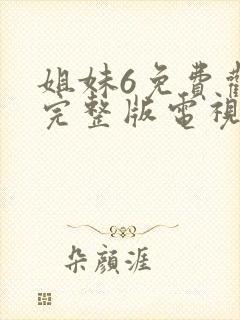 姐妹6免費觀
完整版電視
朵顏涯